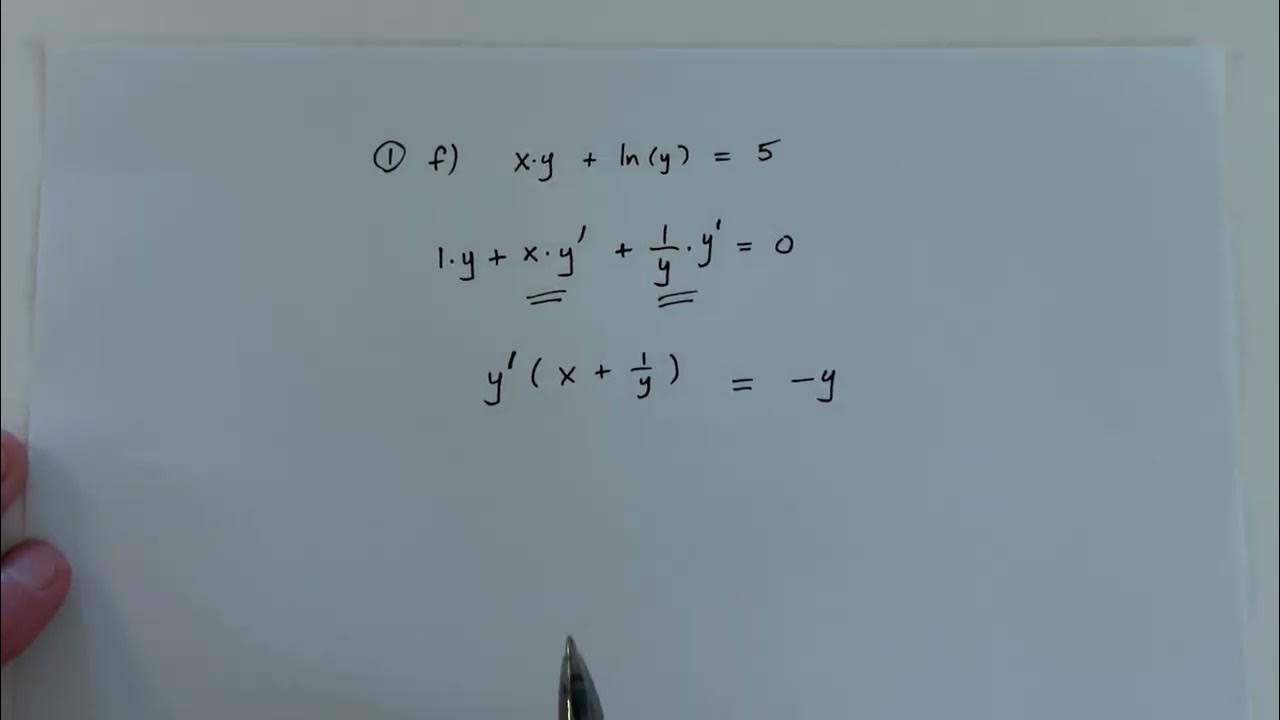 ① f) x·y + ln(y) = 5
1·y + x·y' + 1/y · y' = 0
y' ( x + 1/y ) = -y